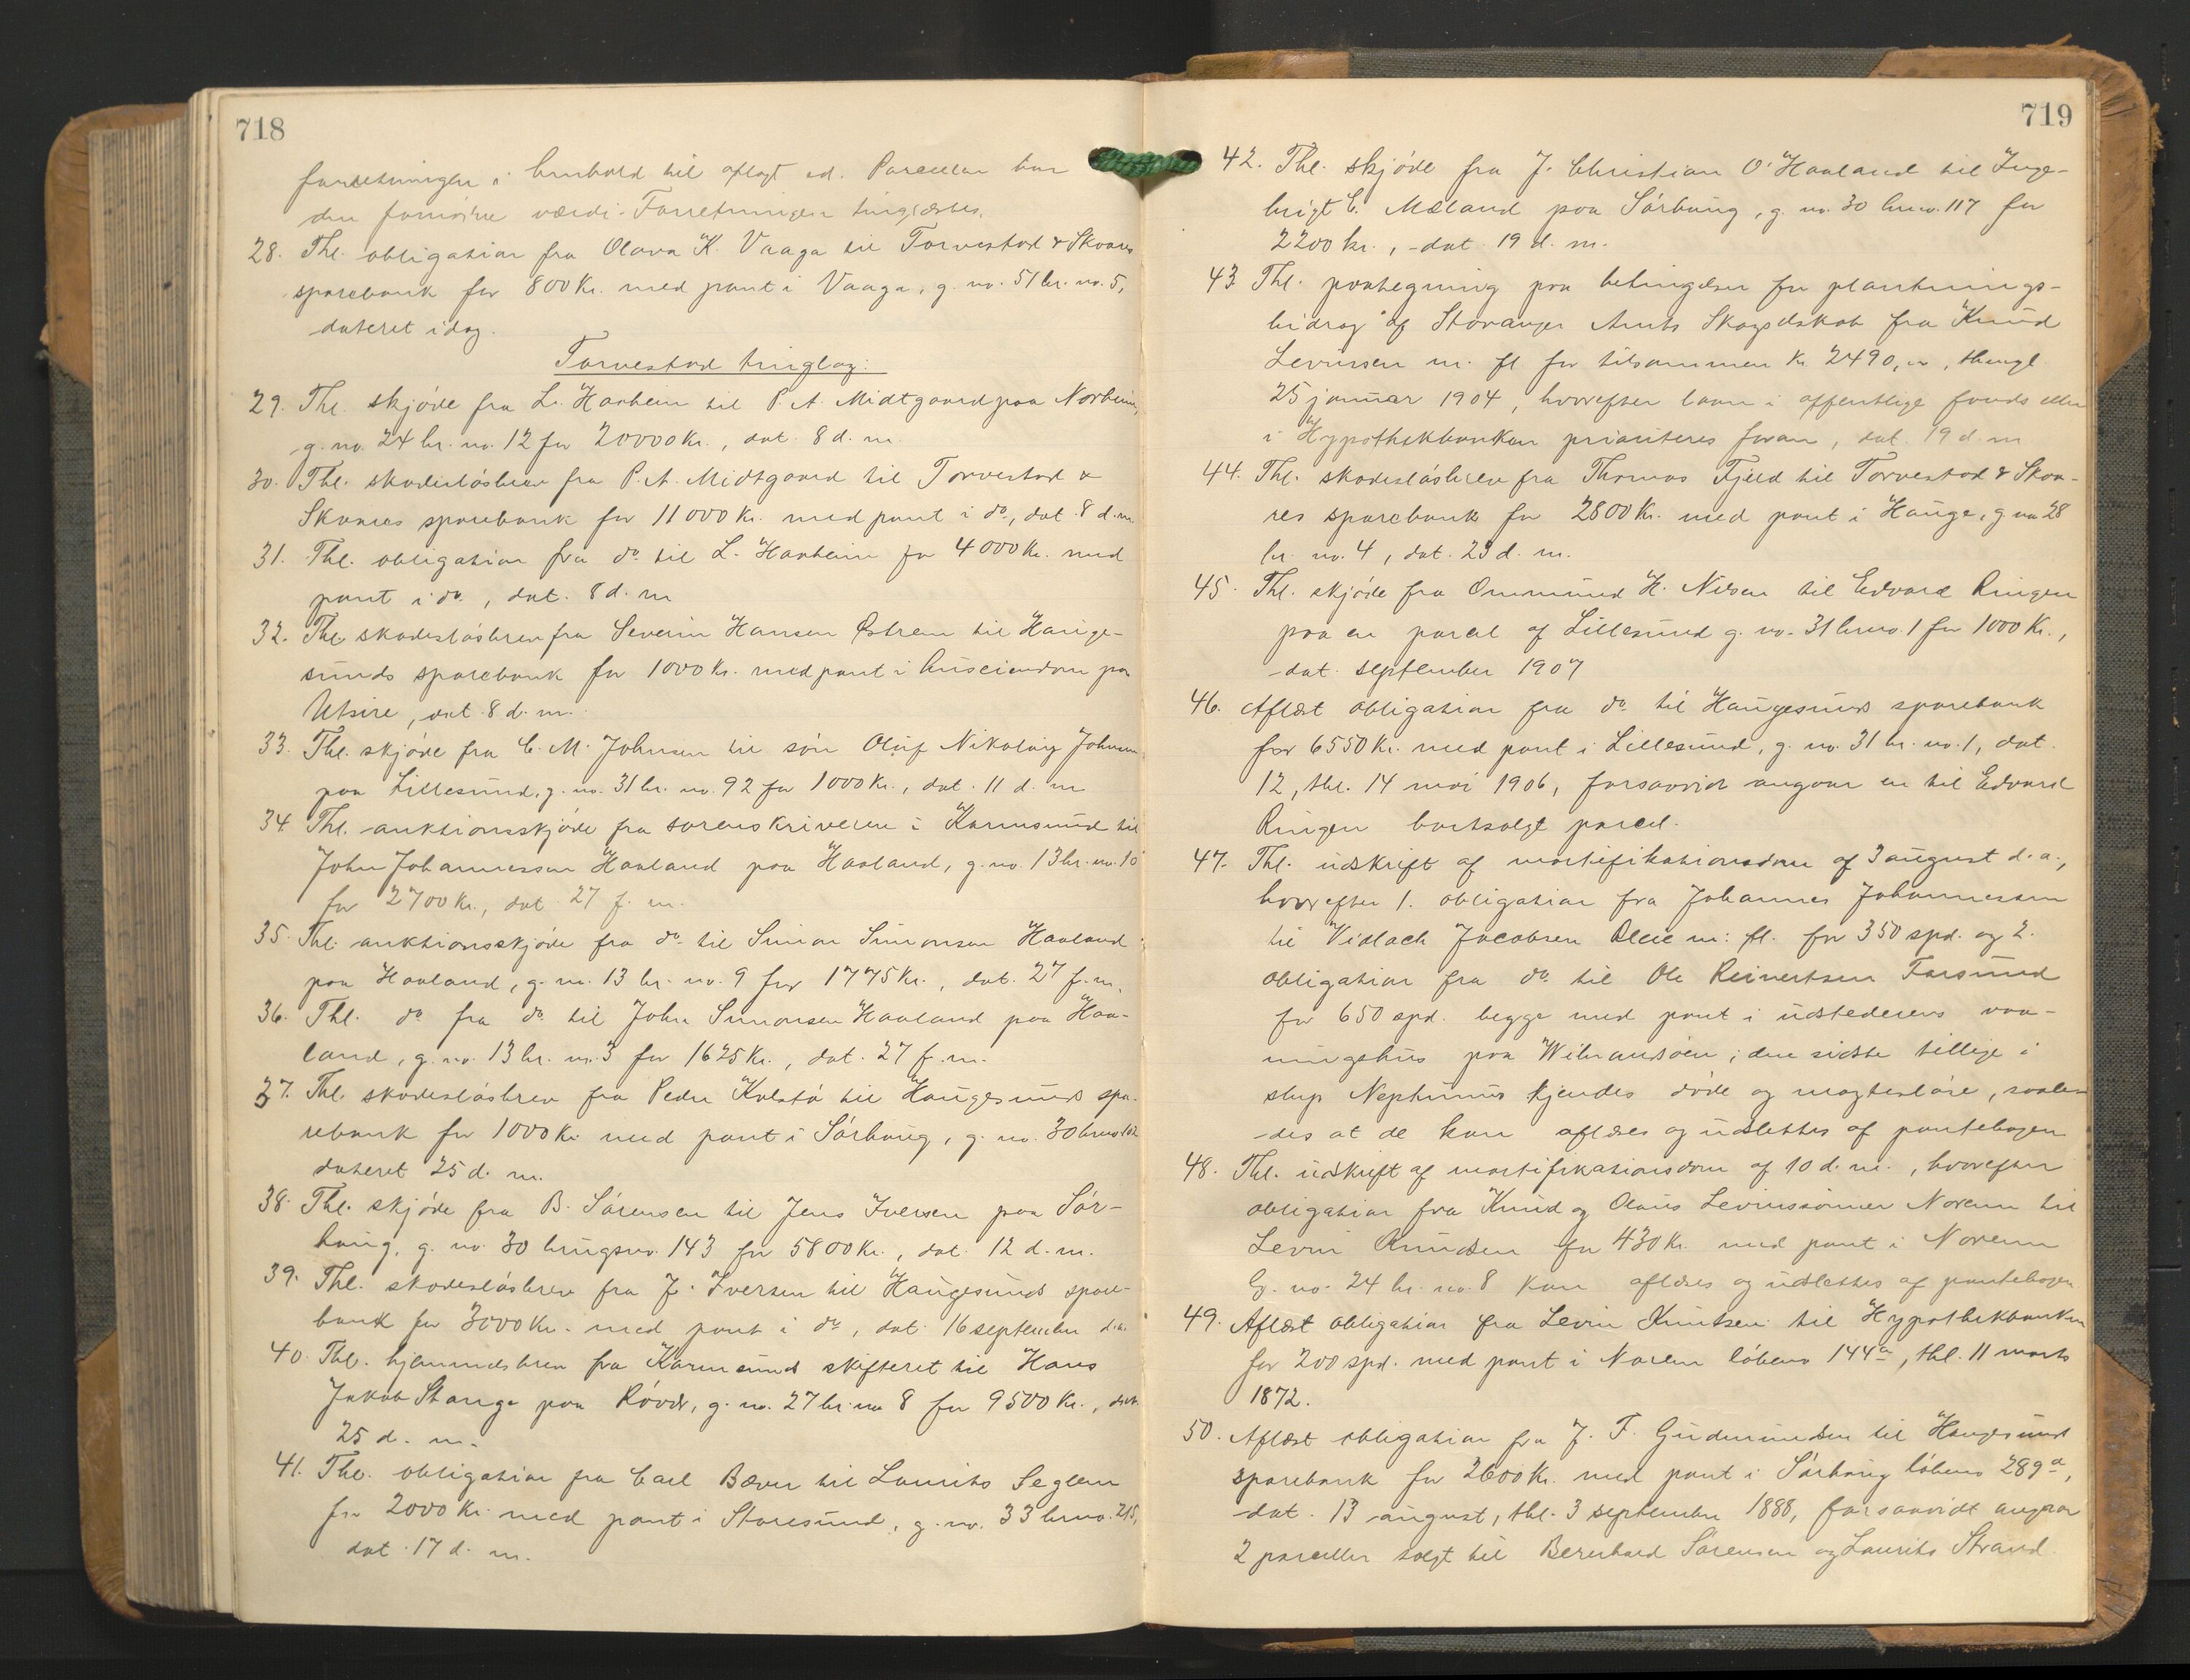 718
forretningen i henhold til aflagt ed. Parcellen har
den fornødne værdi. Forretningen tinglæstes.
28. Thl. obligation fra Olava K. Vaaga til Torvestad & Skaares
sparebank for 800 Kr. med pant i Vaaga, g. no. 51 br. no. 5,
dateret idag.
Torvestad tinglag:
29. Thl. skjøde fra L. Hauheim til P. A. Midtgaard paa Norheim,
g. no. 24 br. no. 12 for 20000 Kr., dat. 8 d. m.
30. Thl. skadesløsbrev fra P. A. Midtgaard til Torvestad &
Skaares sparebank for 11000 Kr. med pant i do, dat. 8 d. m.
31. Thl. obligation fra do til L. Hauheim for 4000 Kr. med
pant i do, dat. 8 d. m
32. Thl. skadesløsbrev fra Severin Hansen Østrem til Hauge-
sunds sparebank for 1000 Kr. med pant i huseiendom paa
Utsire, dat. 8 d. m.
33. Thl. skjøde fra C. M. Johnsen til søn Oluf Nikolay Johnsen
paa Lillesund, g. no. 31 br. no. 92 for 1000 Kr., dat. 11 d. m
34. Thl. auktionsskjøde fra sorenskriveren i Karmsund til
John Johannessen Haaland paa Haaland, g. no. 13 br. no. 10
for 2700 Kr., dat. 27 f. m.
35. Thl. auktionsskjøde fra do til Simon Simonsen Haaland
paa Haaland, g. no. 13 br. no. 9 for 1775 Kr., dat. 27 f. m.
36. Thl. do fra do til John Simonsen Haaland paa Haa-
land, g. no. 13 br. no. 3 for 1625 Kr., dat. 27 f. m.
37. Thl. skadesløsbrev fra Peder Kolstø til Haugesunds spa-
rebank for 1000 Kr. med pant i Sørhaug, g. no. 30 brno
dateret 25 d. m.
38. Thl. skjøde fra B. Sørensen til Jens Iversen paa Sør-
haug, g. no. 30 brugsno. 143 for 5800 Kr., dat. 12 d. m.
39. Thl. skadesløsbrev fra J. Iversen til Haugesunds spare-
bank for 3000 Kr. med pant i do, dat. 16 september d. a.
40. Thl. hjemmelsbrev fra Karmsunds skifteret til Hans
Jakob Stange paa Røvær, g. no. 27 br. no 8 for 9500 Kr., dat.
25 d. m.
41. Thl. obligation fra Carl Bæver til Laurits Seglem
for 2000 Kr. med pant i Storesund, g. no. 33 brno. 215,
dat. 17 d. m.
719
42. Thl. skjøde fra J. Christian O. Haaland til Inge-
brigt C. Mæland paa Sørhaug, g. no. 30 brno. 117 for
2200 kr., dat. 19 d. m.
43. Thl. paategning paa betingelser for plantnings-
bidrag af Stavanger Amts Skogselskab fra Knud
Levinsen m. fl. for tilsammen Kr. 2490, thingl.
25 januar 1904, hvorefter laan i offentlige fonds eller
i Hypothekbanken prioriteres foran, dat. 19 d. m
44. Thl. skadesløsbrev fra Thomas Fjeld til Torvestad & Skaa-
res sparebank for 2800 Kr. med pant i Hauge, g. no 28
br. no. 4, dat. 23 d. m.
45. Thl. skjøde fra Ommund H. Nilsen til Edvard Ringen
paa en parcel af Lillesund g. no. 31 brno. 1 for 1000 Kr.,
dat. september 1907
46. Aflæst obligation fra do til Haugesunds sparebank
for 6550 Kr. med pant i Lillesund, g. no. 31 br. no. 1, dat.
12, thl. 14 mai 1906, forsaavidt angaar en til Edvard
Ringen bortsolgt parcel.
47. Thl. udskrift af mortifikationsdom af 3 august d. a.,
hvorefter 1. obligation fra Johannes Johannessen
til Vidlach Jacobsen m. fl. for 350 spd. og 2.
obligation fra do til Ole Reinertsen Farsund
for 650 spd. begge med pant i udstederens vaa-
ningshus paa Wibrandsøen, den sidste tillige i
slup Neptunus kjendes døde og magtesløse, saale-
des at de kan aflæses og udslettes af pantebogen
48. Thl. udskrift af mortifikationsdom af 10 d. m., hvorefter
obligation fra Knud og Olaus Levinssønner Norem til
Levin Knudsen for 430 Kr. med pant i Norem
G. no. 24 br. no. 8 kan aflæses og udslettes af pantebogen
49. Aflæst obligation fra Levin Knutsen til Hypothekbanken
for 200 spd. med pant i Norem løbeno 144a, thl. 11 marts
1872.
50. Aflæst obligation fra J. T. Gudmundsen til Haugesund
sparebank for 2600 Kr. med pant i Sørhaug løbeno 289a,
dat. 13 august, thl. 3 september 1888, forsaavidt angaar
2 parceller solgt til Bernhard Sørensen og Laurits Strand